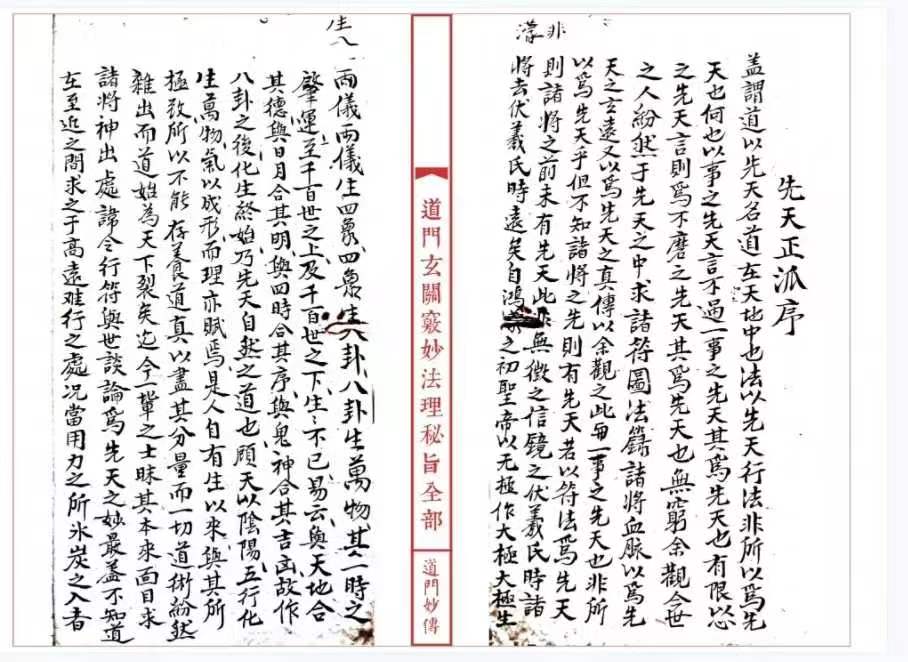 先天正派序
蓋謂道以先天名道在天地中也法以先天行法非所以爲先
天也何也以事之先天言不過一事之先天其爲先天也有限以心
之先天言則爲不磨之先天其爲先天也無窮余觀今世
之人紛然于先天之中求諸符圖法籙諸將血脈以爲先
天之玄遠又以爲先天之真傳以余觀之此毎一事之先天也非所
以爲先天乎但不知諸將之先則有先天若以符法爲先天
則諸將之前未有先天此非無徵之信鏡之伏羲氏時諸
將去伏羲氏時遠矣自鴻濛之初聖帝以无極作大極大極生
非
濛
道門玄關竅妙法理秘旨全部
道門妙傳
生八
兩儀兩儀生四象四象生八卦八卦生萬物其一時之
肇運至千百世之上及千百世之下生〻不已易云與天地合
其德與日月合其明與四時合其序與鬼神合其吉凶故作
八卦之後化生終始乃先天自然之道也顧天以陰陽五行化
生萬物氣以成形而理亦賦焉是人自有生以來與其所
極致所以不能存養道真以盡其分量而一切道術紛然
雜出而道始為天下裂矣迄今一輩之士昧其本來面目求
諸將神出處諱令行符與世談論爲先天之妙最盖不知道
在至近之間求之于高遠难行之處况當用力之所氷炭之入者